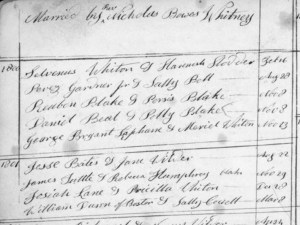 Married by Rev Nicholas Bowes Whitney
1800
Silvenus Whiton & Hannah Stodder Feb 16
Perez Gardner jr & Sally Bell Aug 28
Reuben Blake & Persis Blake Nov 8
Daniel Beal & Polly Blake Nov 8
George Bryant Lapham & Meriel Whiton Nov 13
1801
Jesse Bates & Jane
James Tuttle & Rebecca Humphrey Nov 29
Josiah Lane & Priscilla Whiton Dec 28
William of & Sally Mar 8